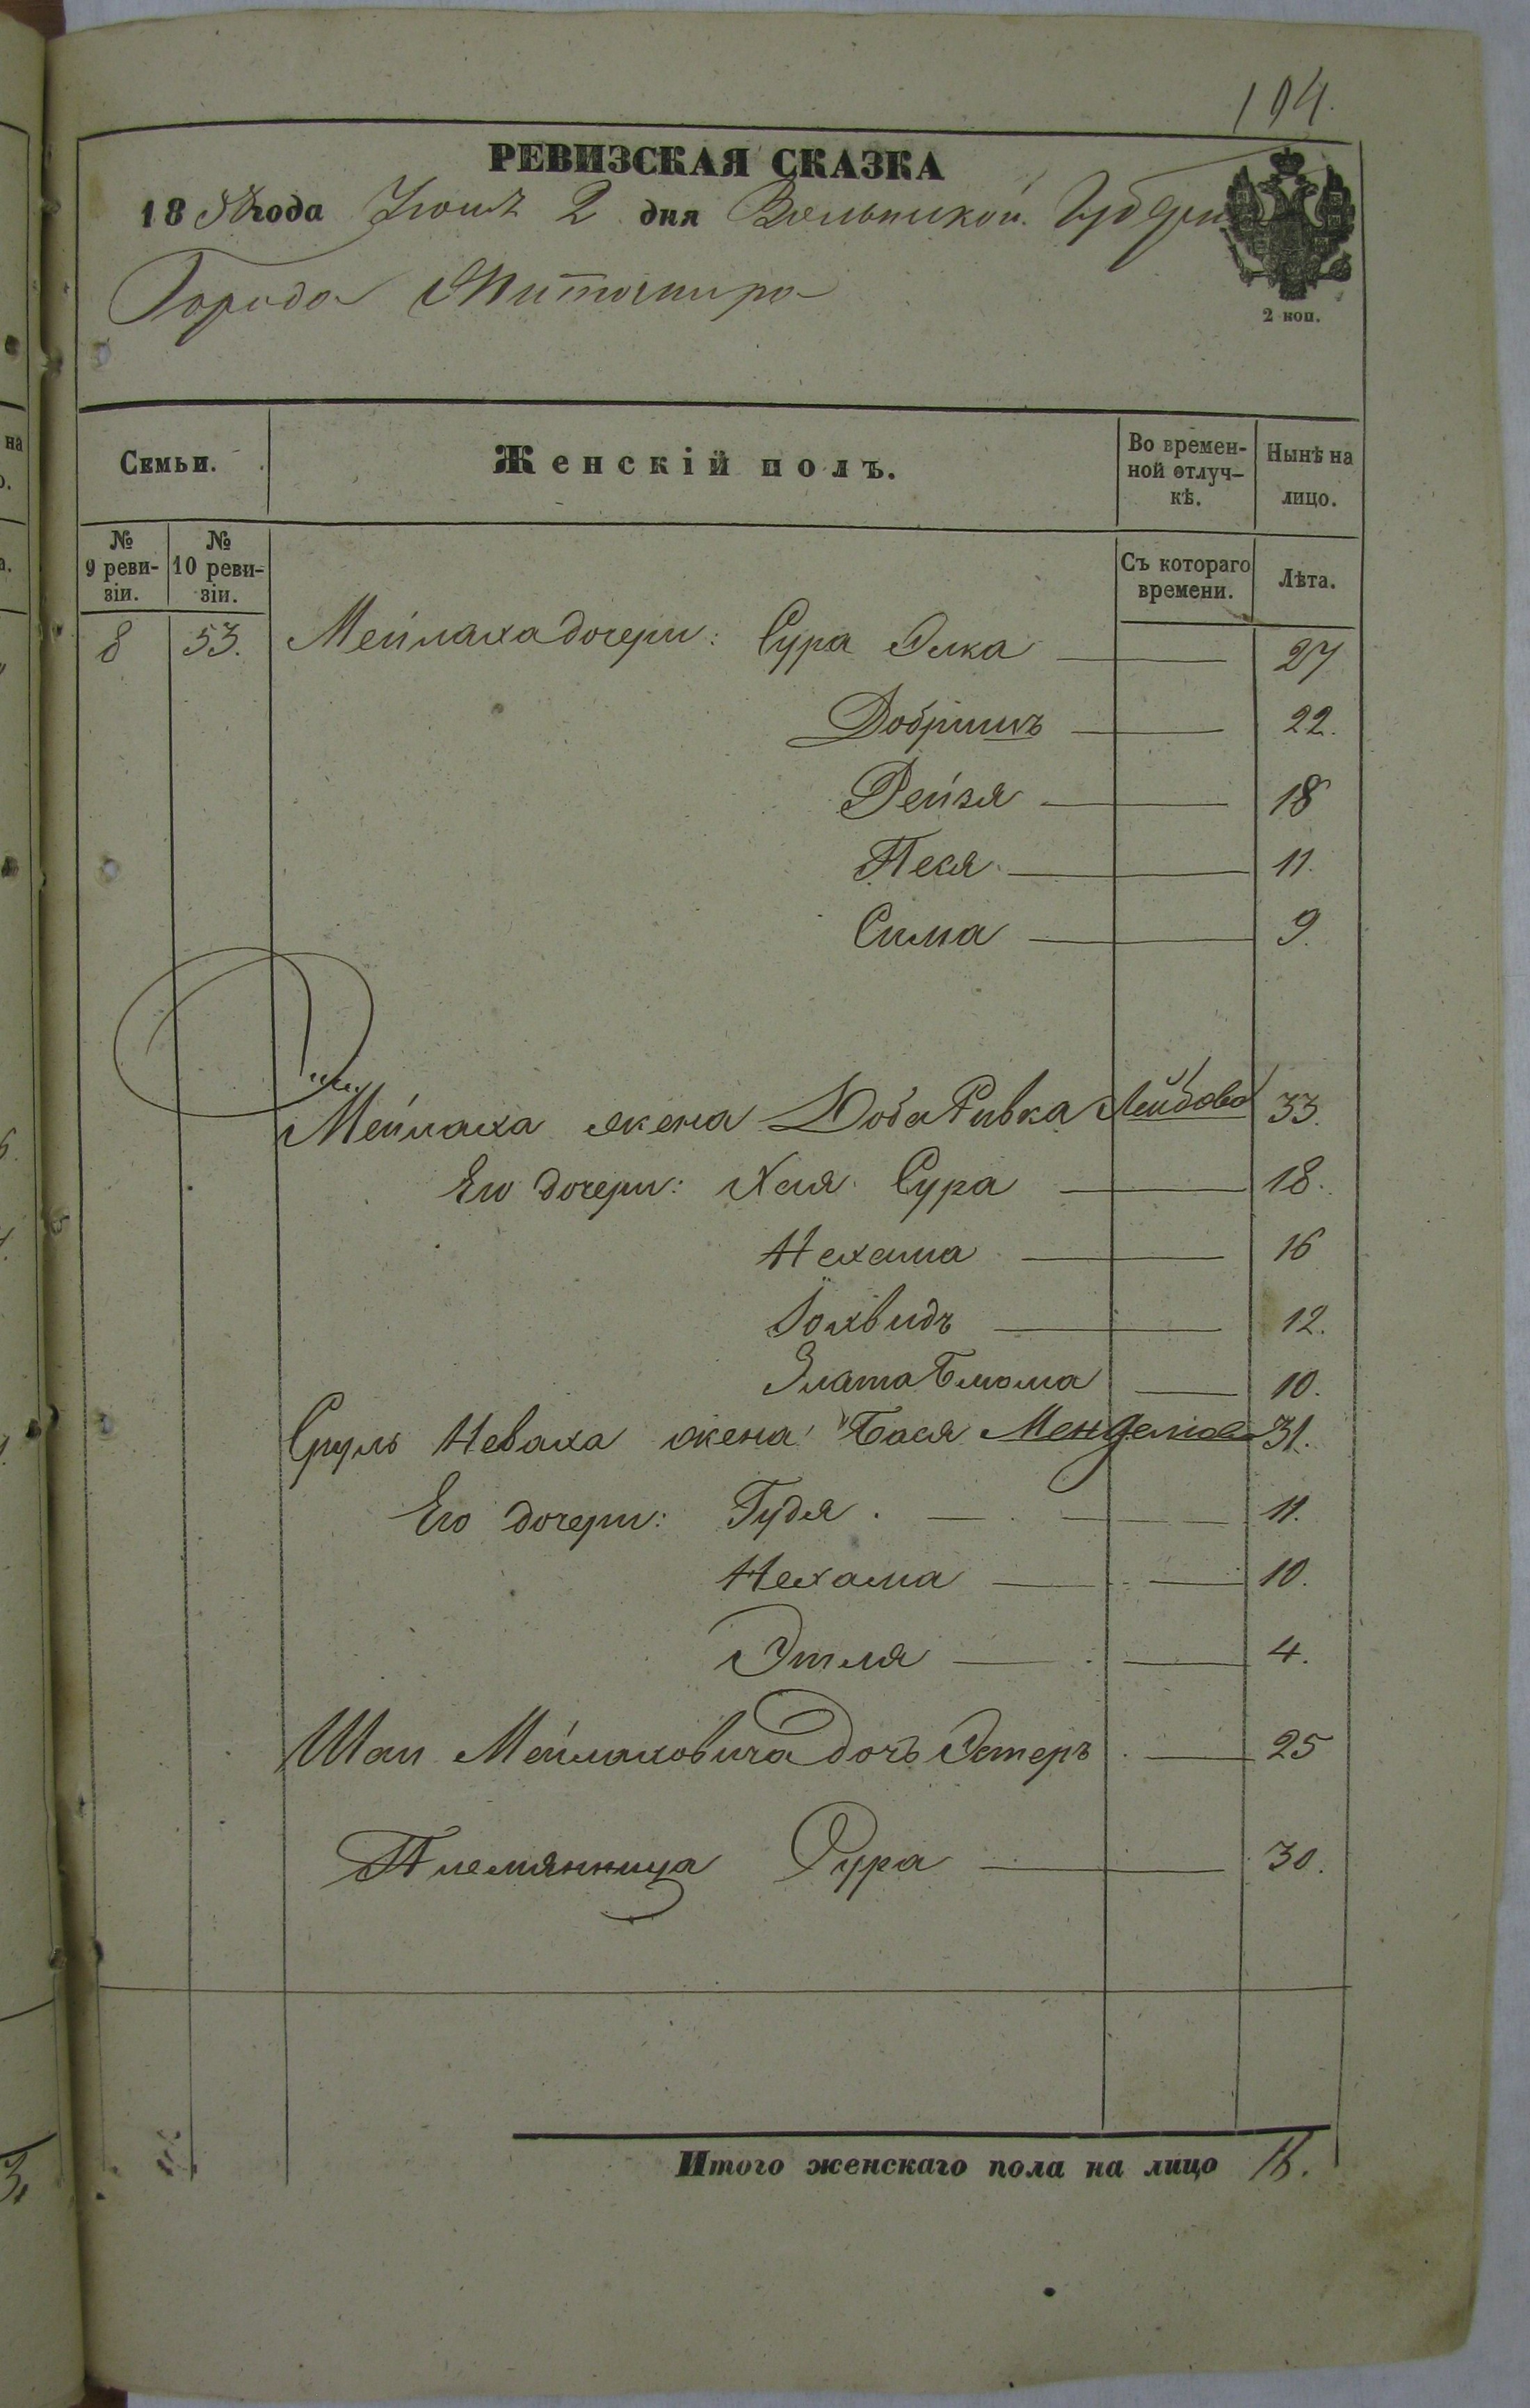 104.
РЕВИЗСКАЯ СКАЗКА
1858 года Іюня 2 дня Волынской Губерніи
Города Житомира
2 коп.
Семьи. Женскій полъ. Во времен-ной отлуч-кѣ. Нынѣ на лицо.
№ 9 реви-зіи. № 10 реви-зіи. Съ котораго времени. Лѣта.
8 53. Мейлаха дочери: Сура Элка 27
Добришъ 22.
Рейзя 18
Песя 11.
Сима 9.
Мейлаха жена Доба Ривка Лейбова 33.
Его дочери: Хая Сура 18.
Нехама 16
Іохвидъ 12.
Злата Блюма 10.
Сруль Неваха жена Бася Менделова 31.
Его дочери: Гудя 11.
Нехама 10.
Этля 4.
Мейлаховича дочь Эстеръ 25
Племянница Сура 30.
Итого женскаго пола на лицо 16.
на